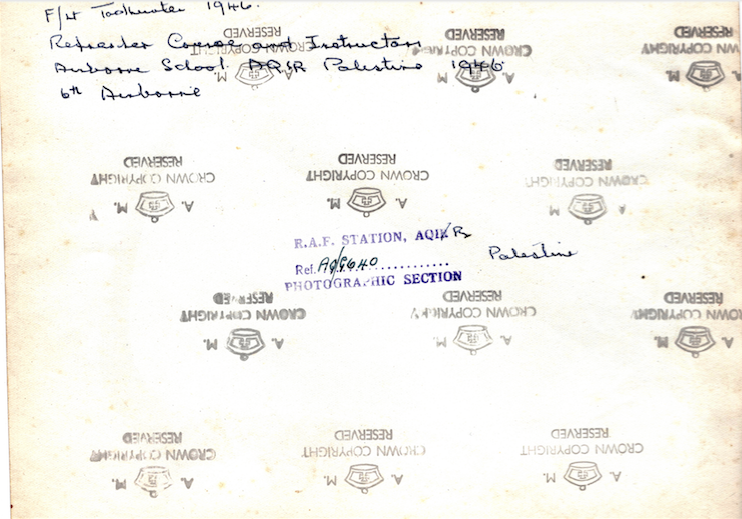 F/Lt 1946.
Refresher Course and Instructors
Airborne School AQIR Palestine 1946
6th Airborne
A. M.
CROWN COPYRIGHT
RESERVED
A. M.
CROWN COPYRIGHT
RESERVED
A. M.
CROWN COPYRIGHT
RESERVED
A. M.
CROWN COPYRIGHT
RESERVED
A. M.
CROWN COPYRIGHT
RESERVED
A. M.
CROWN COPYRIGHT
RESERVED
R.A.F. STATION, AQIR Palestine
Ref.
PHOTOGRAPHIC SECTION
A. M.
CROWN COPYRIGHT
RESERVED
A. M.
CROWN COPYRIGHT
RESERVED
A. M.
CROWN COPYRIGHT
RESERVED
A. M.
CROWN COPYRIGHT
RESERVED
A. M.
CROWN COPYRIGHT
RESERVED
A. M.
CROWN COPYRIGHT
RESERVED